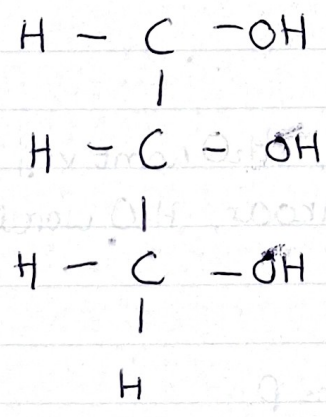 H - C - OH
|
H - C - OH
|
H - C - OH
|
H